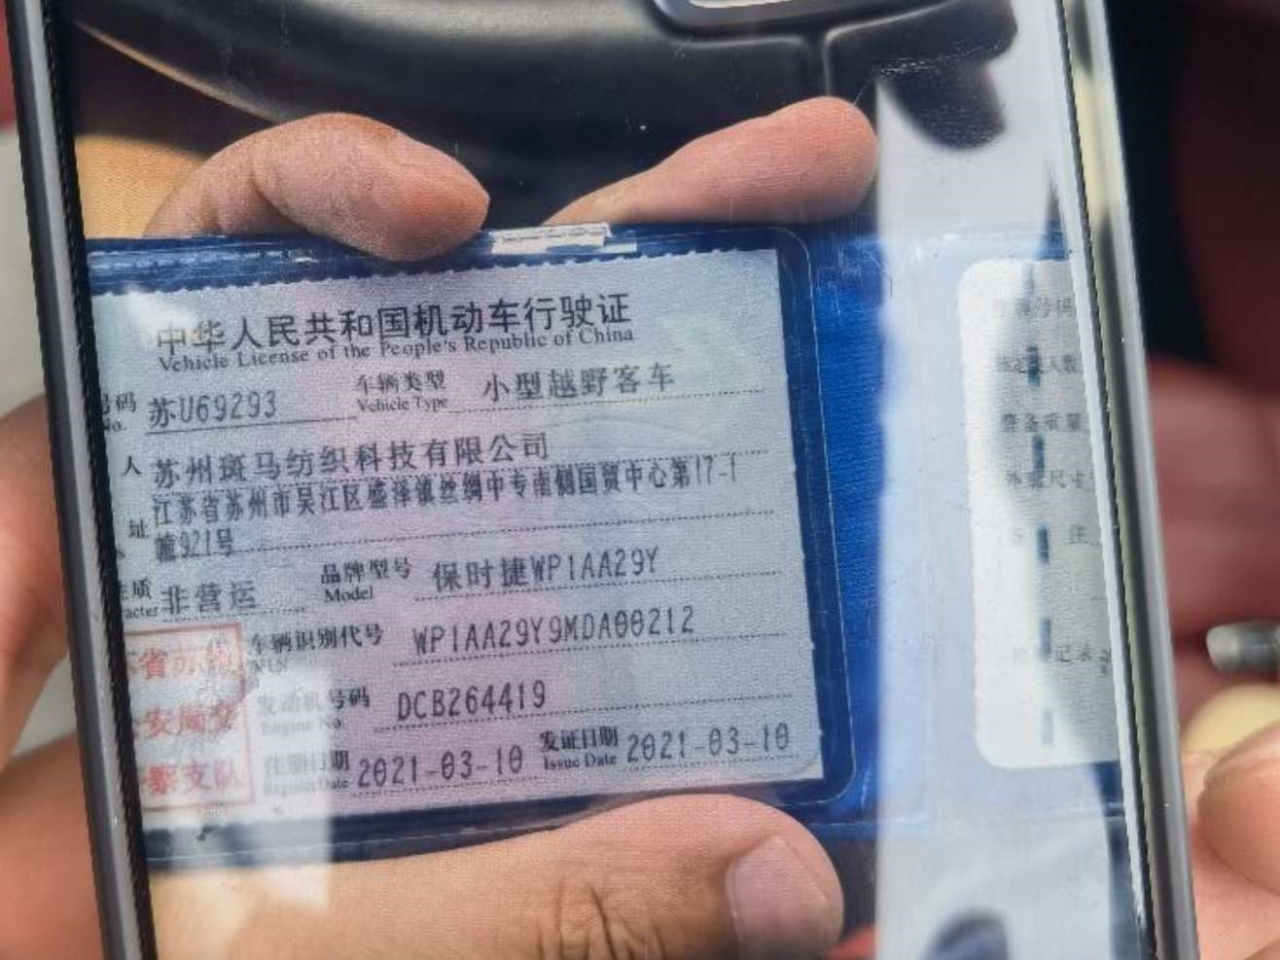 中华人民共和国机动车行驶证
Vehicle License of the People's Republic of China
号码 No. 苏U69293 车辆类型 Vehicle Type 小型越野客车
人 苏州斑马纺织科技有限公司
址 江苏省苏州市吴江区盛泽镇丝绸中专南侧国贸中心第17-1
幢921号
性质 acter 非营运 品牌型号 Model 保时捷WP1AA29Y
车辆识别代号 VIN WP1AA29Y9MDA00212
发动机号码 Engine No. DCB264419
注册日期 Register Date 2021-03-10 发证日期 Issue Date 2021-03-10
省苏州
安局交
察支队
号码
人数
整备质量
外廓尺寸
注
记录